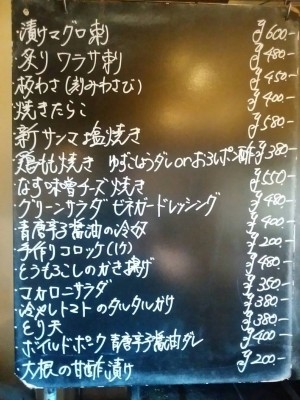 ・漬けマグロ刺 ¥600-
・炙りワラサ刺 ¥480-
・板わさ(刻みわさび) ¥450-
・焼きたらこ ¥400-
・新サンマ塩焼き ¥580-
・鶏もも焼き ゆずこしょうダレorおろしポン酢 ¥380-
・なす味噌チーズ焼き ¥550-
・グリーンサラダ ビネガードレッシング ¥480-
・青唐辛子醤油の冷奴 ¥400-
・手作りコロッケ(1ケ) ¥200-
・とうもろこしのかき揚げ ¥480-
・マカロニサラダ ¥350-
・冷やしトマトのタルタルがけ ¥380-
・とり天 ¥380-
・ボイルドポーク 青唐辛子醤油ダレ ¥400-
・大根の甘酢漬け ¥200-